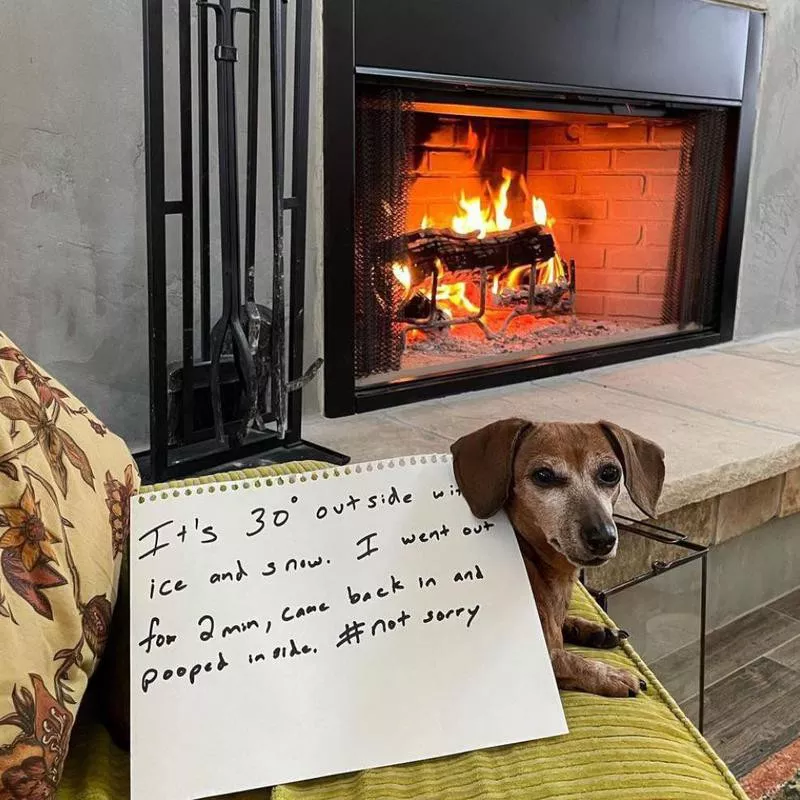 It's 30° outside wi
ice and snow. I went out
for 2 min, came back in and
pooped inside. #not sorry